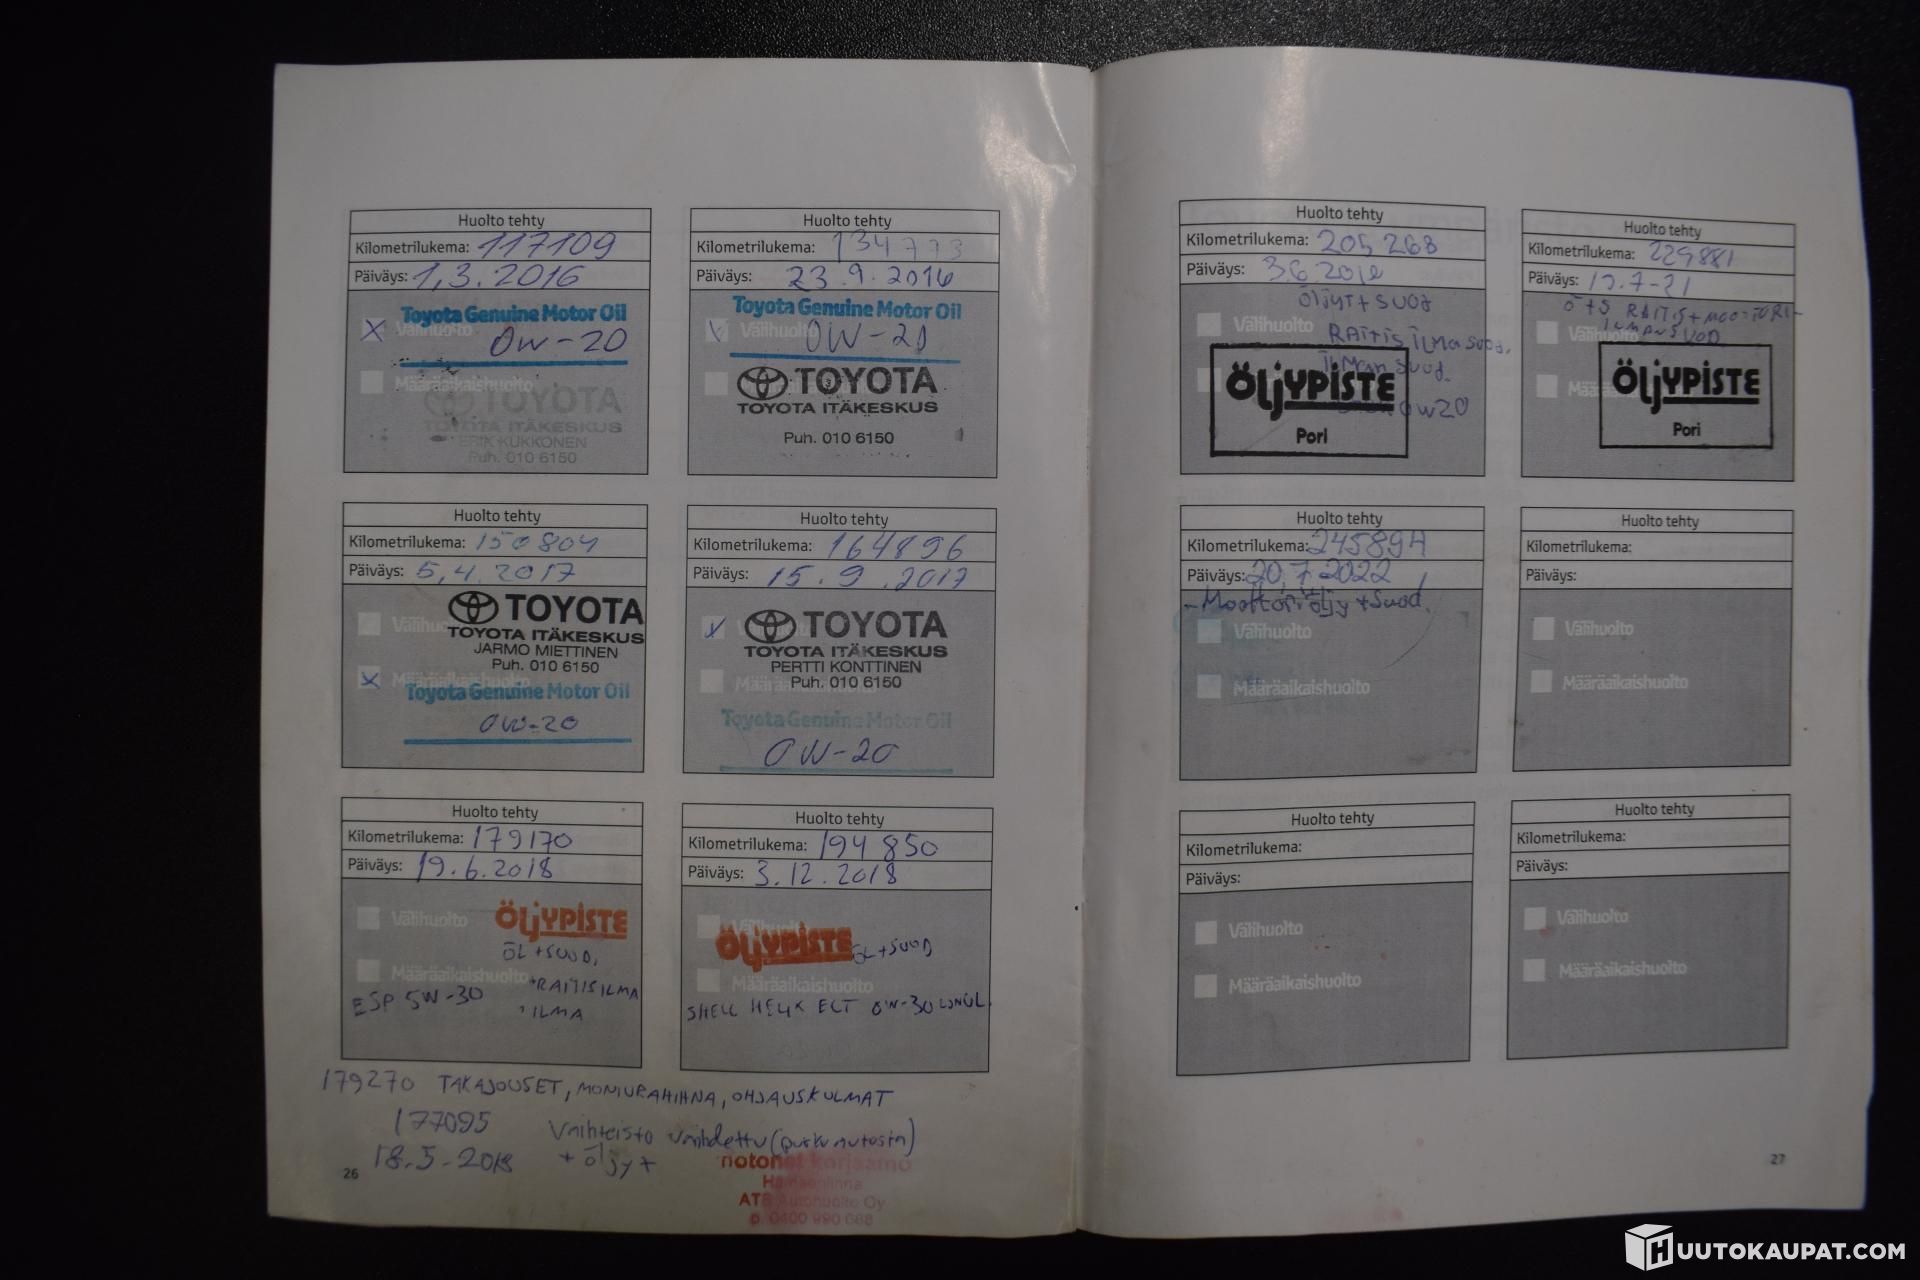 Huolto tehty
Kilometrilukema: 117109
Päiväys: 1.3.2016
Toyota Genuine Motor Oil
X Välihuolto
0W-20
Määräaikaishuolto
TOYOTA
TOYOTA ITÄKESKUS
ERIK KUKKONEN
Puh. 010 6150
Huolto tehty
Kilometrilukema: 134773
Päiväys: 23.9.2016
Toyota Genuine Motor Oil
Välihuolto
0W-20
TOYOTA
TOYOTA ITÄKESKUS
Puh. 010 6150
Huolto tehty
Kilometrilukema: 150804
Päiväys: 5.4.2017
TOYOTA
TOYOTA ITÄKESKUS
JARMO MIETTINEN
Puh. 010 6150
X Määräaikaishuolto
Toyota Genuine Motor Oil
0W-20
Huolto tehty
Kilometrilukema: 164896
Päiväys: 15.9.2017
TOYOTA
TOYOTA ITÄKESKUS
PERTTI KONTTINEN
Puh. 010 6150
Toyota Genuine Motor Oil
0W-20
Huolto tehty
Kilometrilukema: 179170
Päiväys: 19.6.2018
Välihuolto
ÖLJYPISTE
ÖL+SUOD,
Määräaikaishuolto
+RAITISILMA
ESP 5W-30
+ILMA
Huolto tehty
Kilometrilukema: 194850
Päiväys: 3.12.2018
Välihuolto
ÖLJYPISTE
ÖL+SUOD
Määräaikaishuolto
SHELL HELIX ECT 0W-30
179270 TAKAJOUSET, MONIURAHIHNA, OHJAUSKULMAT
177095
Vaihteisto vaihdettu (purkuautosta)
18.5-2018
+ öljyt
korjaamo
Hämeenlinna
Autohuolto Oy
p. 0400 990 688
26
Huolto tehty
Kilometrilukema: 205268
Päiväys:
öljyt + suod
Välihuolto
RAITIS ILMA SUOD.
ILMAN SUOD.
ÖLJYPISTE
0W20
Pori
Huolto tehty
Kilometrilukema: 229881
Päiväys:
Ö+S RAITIS+MOOTTORI-
ILMANSUOD.
Välihuolto
ÖLJYPISTE
Pori
Huolto tehty
Kilometrilukema: 245894
Päiväys: 20.7.2022
- Moottoriöljy + Suod.
Välihuolto
Määräaikaishuolto
Huolto tehty
Kilometrilukema:
Päiväys:
Välihuolto
Määräaikaishuolto
Huolto tehty
Kilometrilukema:
Päiväys:
Välihuolto
Määräaikaishuolto
Huolto tehty
Kilometrilukema:
Päiväys:
Välihuolto
Määräaikaishuolto
27
HUUTOKAUPAT.COM